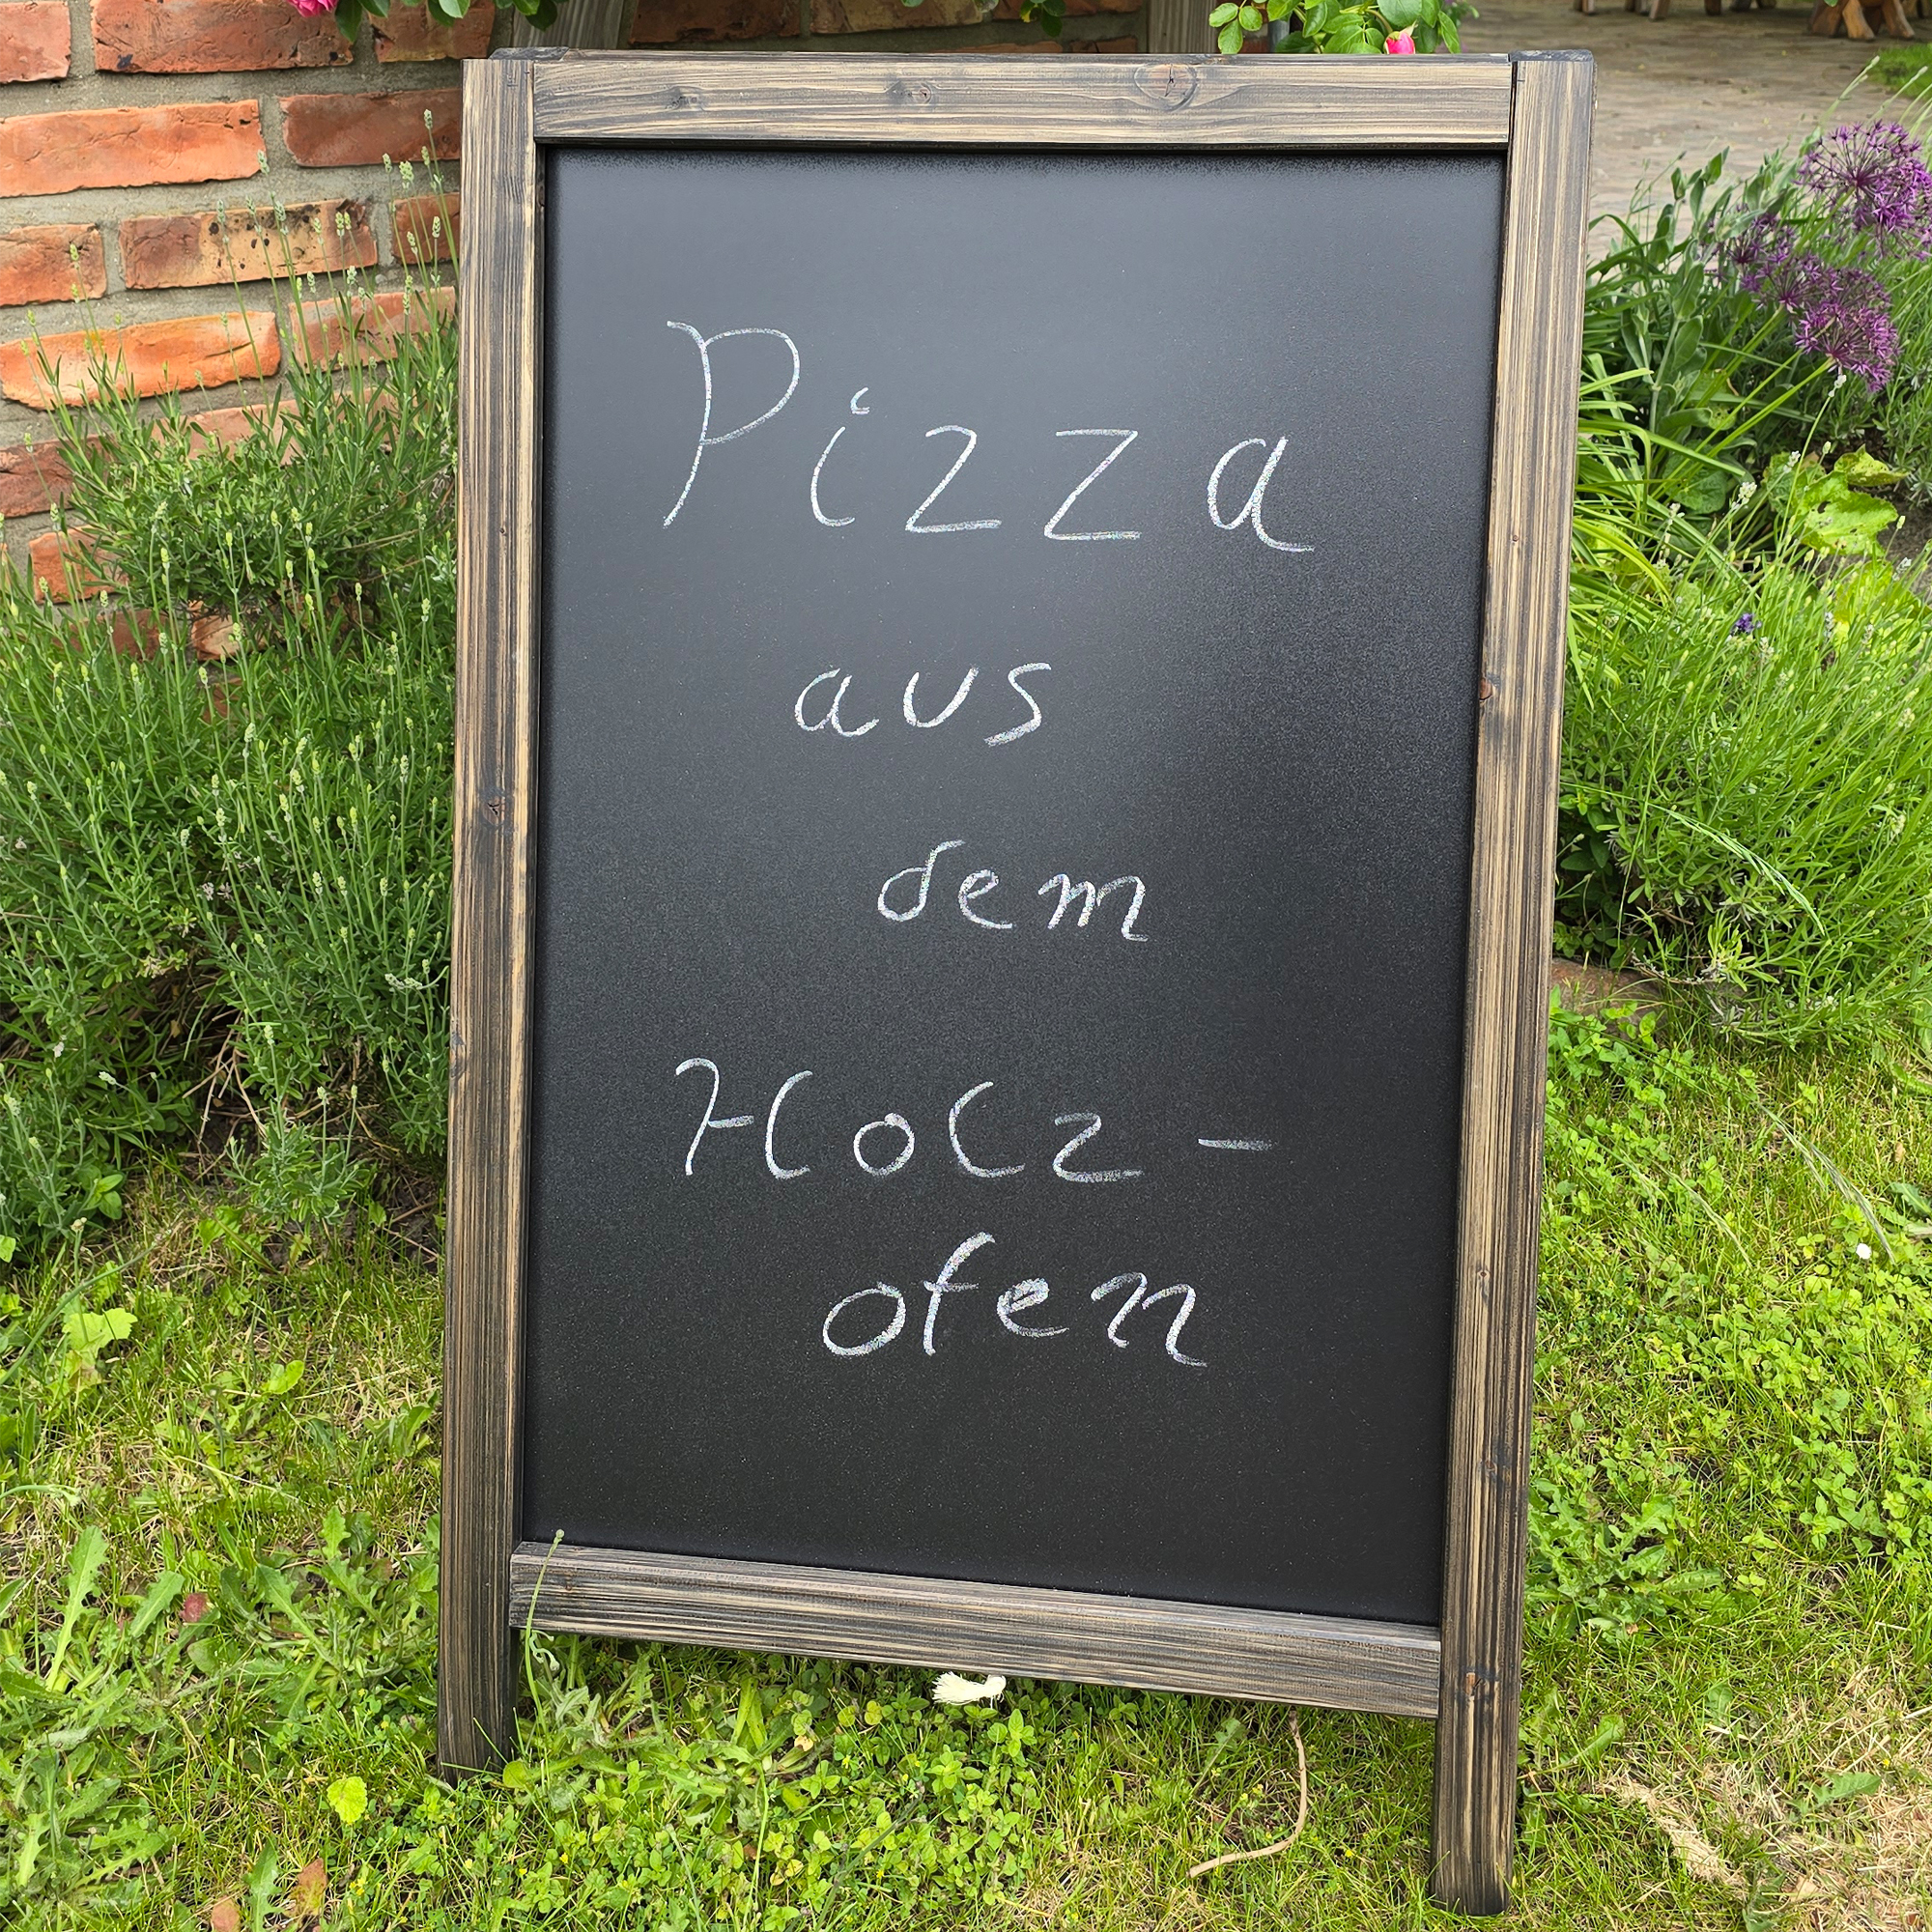 Pizza
aus
dem
Holz-
ofen